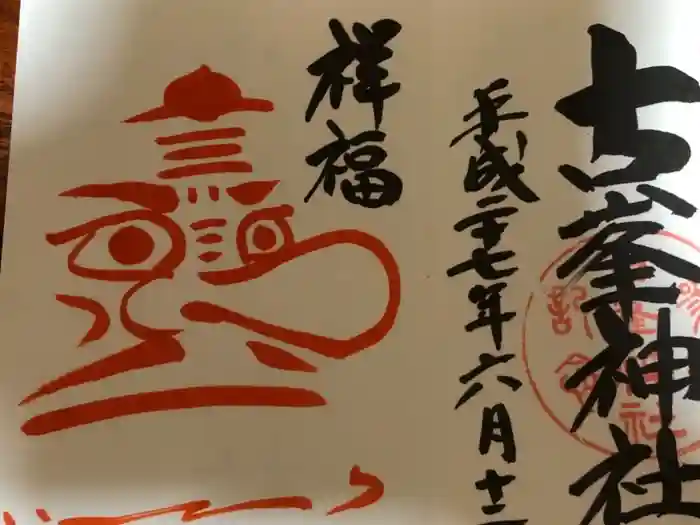 古峯神社
平成二十七年六月十二
祥福